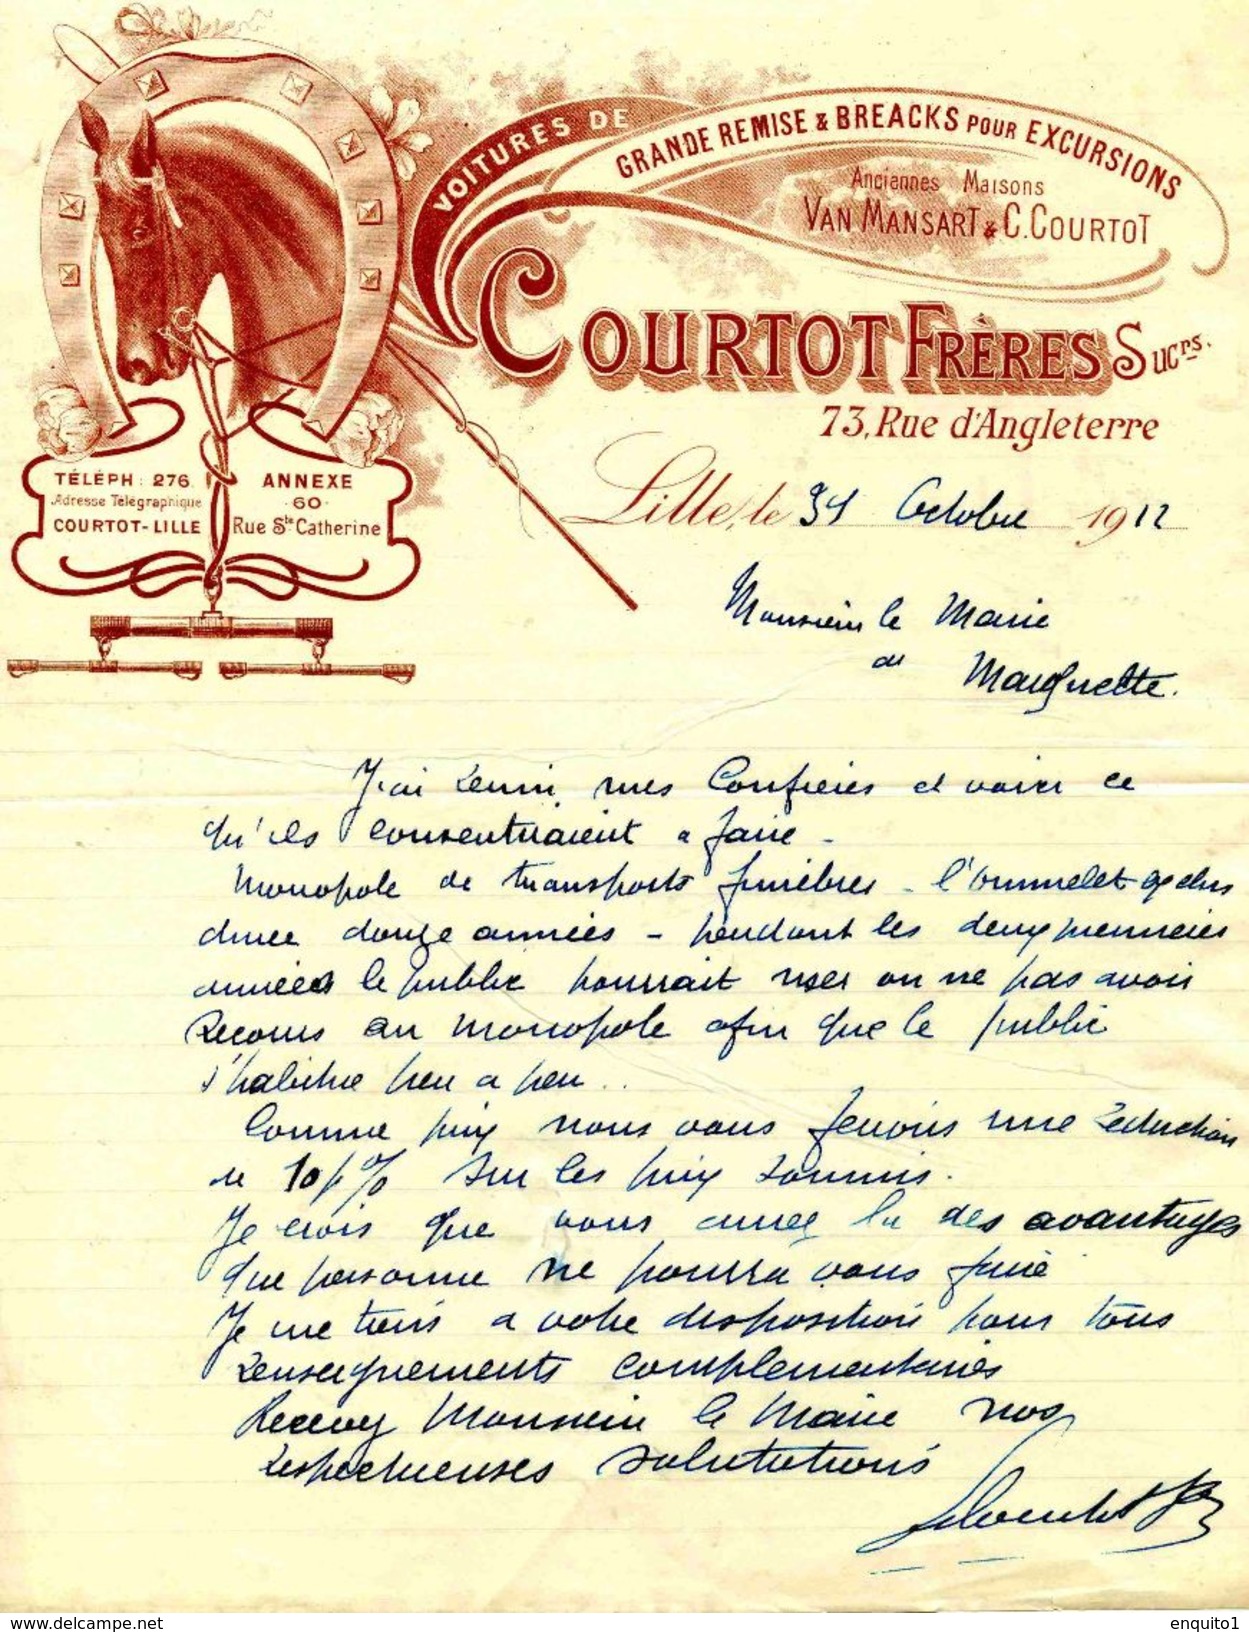 VOITURES DE
GRANDE REMISE & BREACKS POUR EXCURSIONS
Anciennes Maisons
VAN MANSART & C. COURTOT
COURTOT FRÈRES Sucrs.
73, Rue d'Angleterre
TÉLÉPH : 276
Adresse Télégraphique
COURTOT-LILLE
ANNEXE
60
Rue Ste Catherine
Lille, le 31 Octobre 1912
Monsieur le Maire
de
Marquette.
J'ai réuni mes Confrères et voici ce
qu'ils consentiraient a faire -
Monopole de transports funèbres - l'ommelet
durée douze années - pendant les deux premieres
années le public pourrait user ou ne pas avoir
recours au monopole afin que le public
s'habitue peu a peu ..
Comme prix nous vous ferions une reduction
de 10 p % sur les prix soumis.
Je crois que vous aurez la des avantages
que personne ne pourra vous faire
Je me tiens a votre disposition pour tous
renseignements complementaires
Recevez Monsieur le Maire nos
respectueuses salutations
enquito1